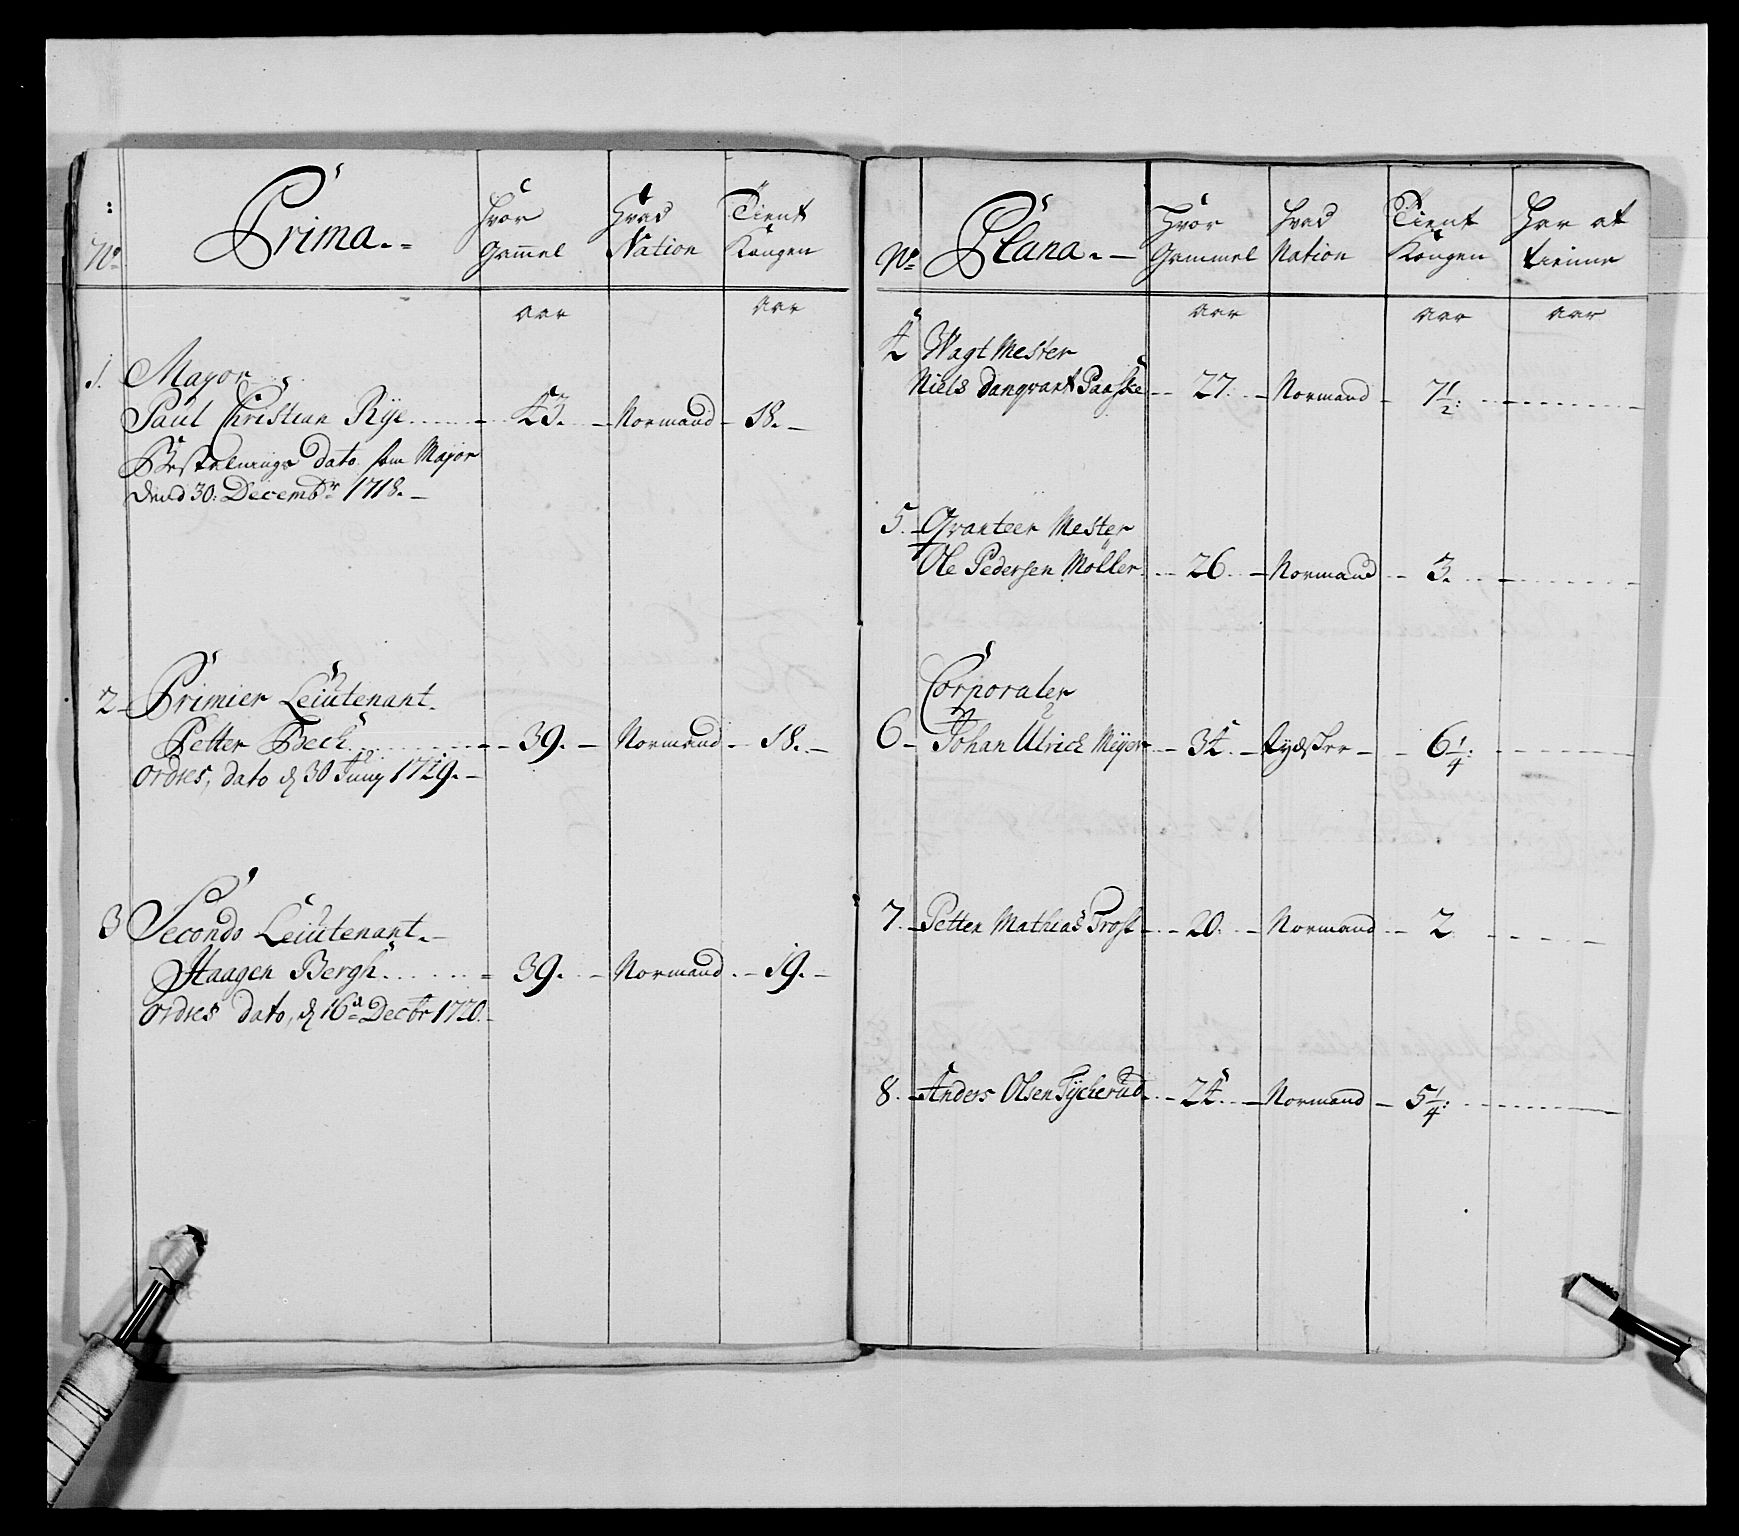 No
Prima.
Hvor
Gammel
Hvad
Nation
Tient
Kongen
Aar
Aar
1. Major
Paul Christian Rÿe 43. Normand 18.
Bestalnings Dato som Major
dend 30: Decembr 1718.
2 Primier Leiutenant.
Petter Beck 39. Normand 18.
Ordres, dato d 30 Juny 1719.
3 Seconde Leiutenant.
Haagen Bergh 39. Normand 19.
Ordres dato, d 16 Decbr 1720.
No
Plana.
Hvor
Gammel
Hvad
Nation
Tient
Kongen
Har at
tienne
Aar
Aar
Aar
4 Wagt Mester
Niels Danqvart Paaske 27. Normand 7 1/2:
5. Qvarteer Mester
Ole Pedersen Möller 26. Normand 3.
Corporaler
6 Johan Ulrich Meÿer 34. Tydsker 6 1/4:
7. Petter Mathias Trost 20. Normand 2
8. Anders Olsen Tÿcherud 24. Normand 5 1/4: